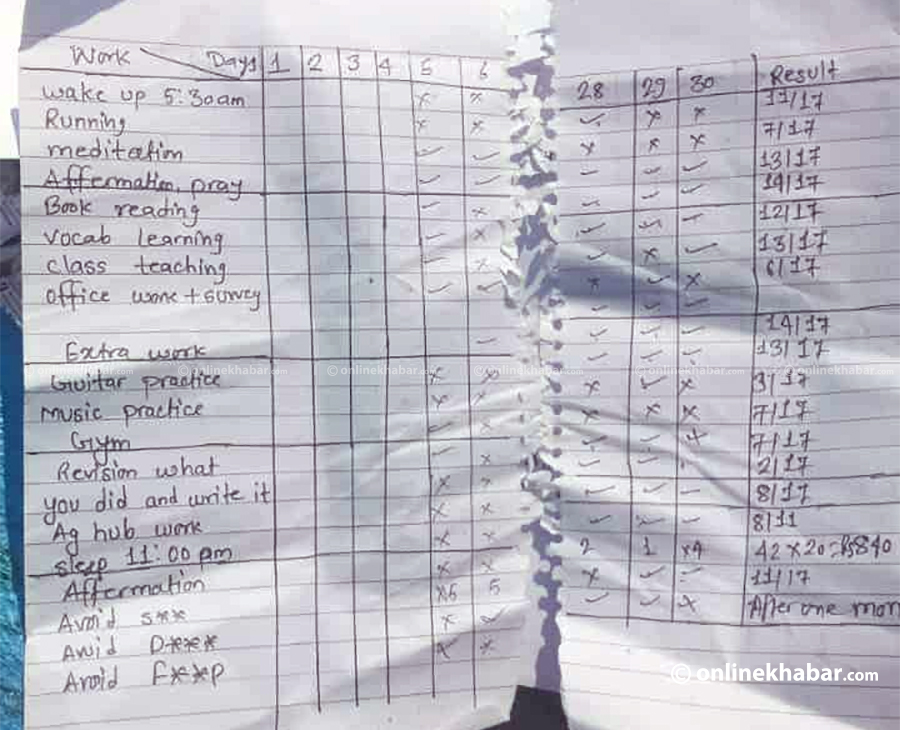 Work Days 1 2 3 4 5 6
wake up 5:30am × ×
Running × ×
meditation ✓ ✓
Affermation, pray ✓ ✓
Book reading ✓ ×
Vocab learning ✓ ×
class teaching ✓ ×
office work + survey ✓ ✓
Extra work ✓
Guitar practice × ×
Music practice × ×
Gym ✓ ×
Revision what ✓ ×
you did and write it × ×
Ag hub work × ×
sleep 11:00 pm × ×
Affermation × ×
Avoid s** ×6 5
Avoid D*** × ✓
Avoid F**p × ×
28 29 30 Result
✓ × × 11/17
× × × 7/17
✓ ✓ ✓ 13/17
✓ ✓ ✓ 14/17
✓ ✓ ✓ 12/17
✓ × ✓ 13/17
× ✓ × 6/17
✓ ✓ ✓
✓ ✓ ✓ 14/17
✓ ✓ ✓ 13/17
× ✓ × 3/17
× × × 7/17
✓ ✓ × 7/17
✓ ✓ 2/17
✓ ✓ ✓ 8/17
✓ × ✓ 8/11
2 1 ×4 42 × 20 = Rs 840
× ✓ ✓ 11/17
✓ ✓ × After one mon
© onlinekhabar.com © onlinekhabar.com © onlinekhabar.com © onlinekhabar.com © onlinekhabar.com © onlinekhabar.com
onlinekhabar.com